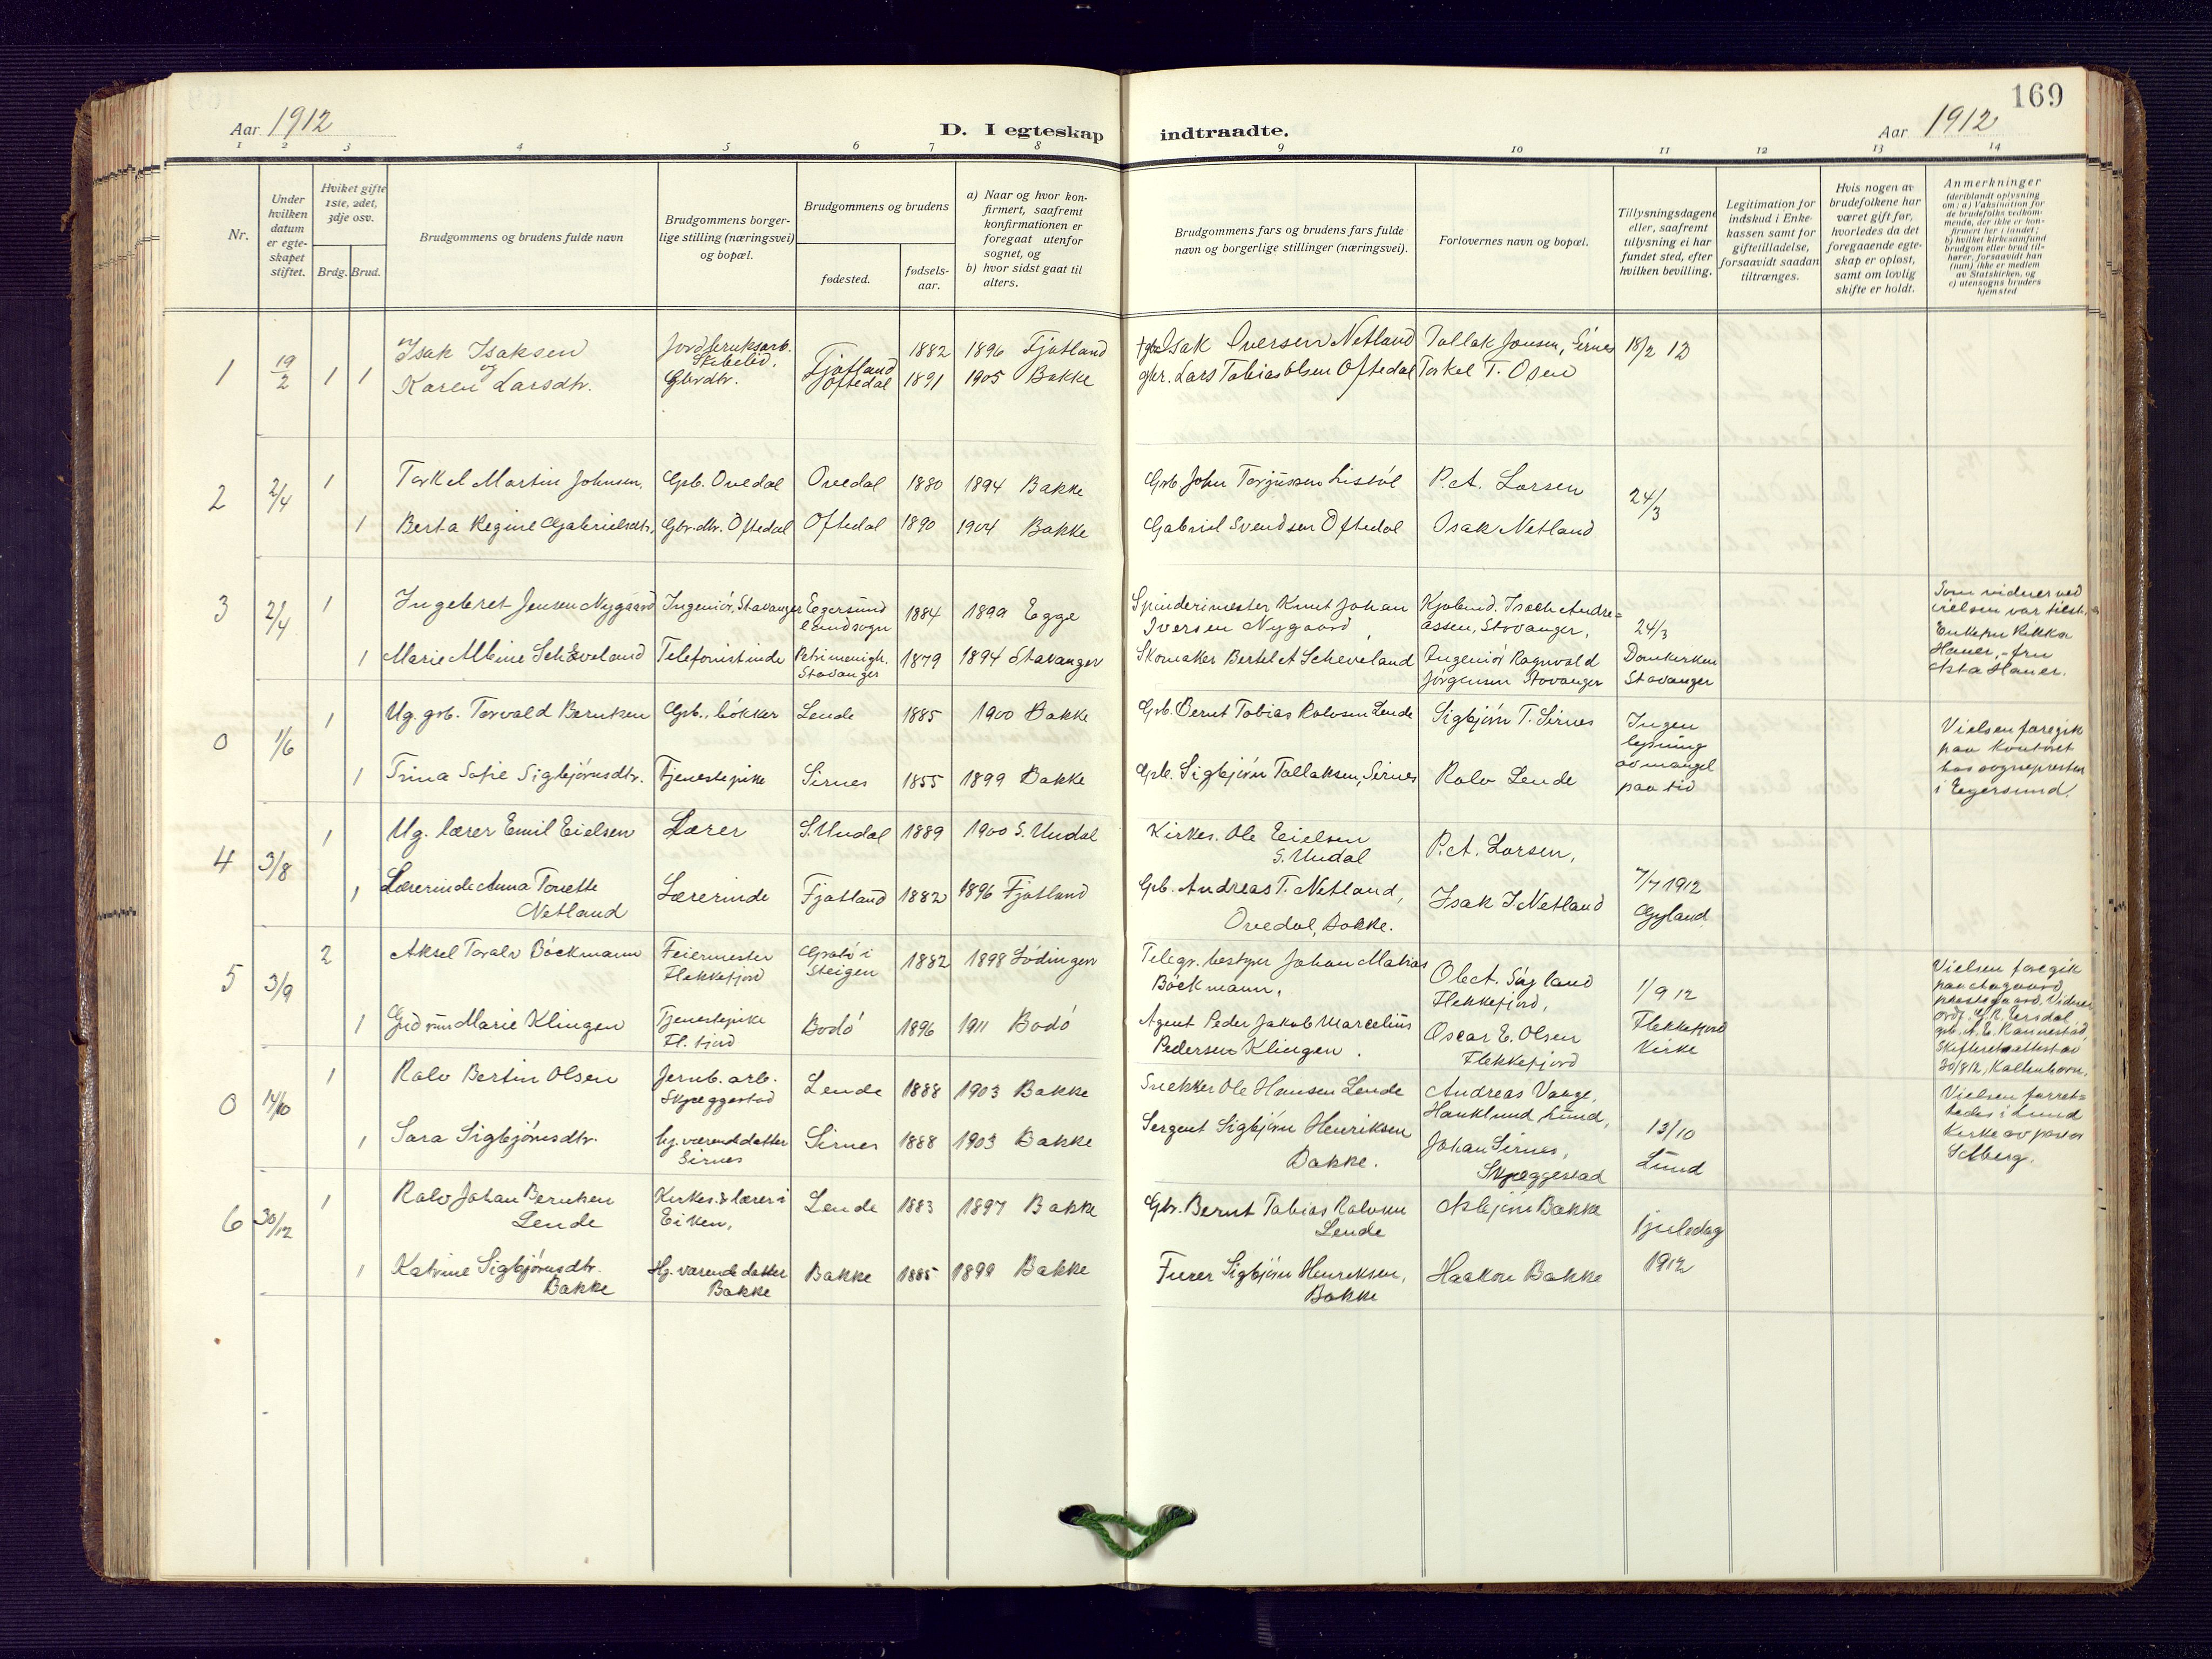 169
Aar 1912
D. I egteskap indtraadte.
Aar 1912
1 2 3 4 5 6 7 8 9 10 11 12 13 14
Nr.
Under hvilken datum er egteskapet stiftet.
Hviket gifte 1ste, 2det, 3dje osv.
Brdg. Brud.
Brudgommens og brudens fulde navn
Brudgommens borgerlige stilling (næringsvei) og bopæl.
Brudgommens og brudens
fødested.
fødselsaar.
a) Naar og hvor konfirmert, saafremt konfirmationen er foregaat utenfor sognet, og
b) hvor sidst gaat til alters.
Brudgommens fars og brudens fars fulde navn og borgerlige stillinger (næringsvei).
Forlovernes navn og bopæl.
Tillysningsdagene eller, saafremt tillysning ei har fundet sted, efter hvilken bevilling.
Legitimation for indskud i Enkekassen samt for giftetilladelse, forsaavidt saadan tiltrænges.
Hvis nogen av brudefolkene har været gift før, hvorledes da det foregaaende egteskap er opløst, samt om lovlig skifte er holdt.
Anmerkninger (deriblandt oplysning om: a) Vaksination for de brudefolks vedkommende, der ikke er konfirmert her i landet; b) hvilket kirkesamfund brudgom eller brud tilhører, forsaavidt han (hun) ikke er medlem av Statskirken, og c) utensogns bruders hjemsted
1 19/2 1 1 Isak Isaksen Jordbruksarb. Skibelid, Fjotland 1882 1896 Fjotland Isak Iversen Netland Tallak Jonsen, Sirnes 18/2 12
og
Karen Larsdtr. Gbrdtr. Oftedal 1891 1905 Bakke gbr. Lars Tobias Olsen Oftedal Torkel T. Osen
2 2/4 1 Torkel Martin Johnsen, Gsb. Ovedal Ovedal 1880 1894 Bakke Gsb. John Torjussen Listøl P. A. Larsen 24/3
1 Berta Regine Gabrielsdtr. Gbr.dtr. Oftedal Oftedal 1890 1904 Bakke Gabriel Svendsen Oftedal Osak Netland
3 2/4 1 Ingebret Jensen Nygaard Ingeniør, Stavanger Egersund landsogn 1884 1899 Egge Spinderimester Knut Johan Iversen Nygaard Kjøbmd. Isach Andreassen, Stavanger, 24/3
Som vidner ved vielsen var tilst. Enkefru Rikka Hauer, - fru Asta Hauer.
1 Marie Albine Scheveland Telefonistinde Petri menigh. Stavanger 1879 1894 Stavanger Skomaker Bertel A Scheveland Ingeniør Ragnvald Jørgensen Stavanger Domkirken Stavanger
0 1/6 1 Ug. gsb. Torvald Berntsen Gsb., bøkker Lende 1885 1900 Bakke Gsb. Bernt Tobias Rolvsen Lende Sigbjørn T. Sirnes Ingen lysning av mangel paa tid
Vielsen foregik paa kontoret hos sognepresten i Egersund.
1 Trina Sofie Sigbjørnsdtr. Tjenestepike Sirnes 1855 1899 Bakke Gsb. Sigbjørn Tallaksen, Sirnes Rolv Lende
4 3/8 1 Ug. lærer Emil Eielsen Lærer S. Undal 1889 1900 S. Undal Kirkes. Ole Eielsen S. Undal P. A. Larsen,
1 Lærerinde Anna Tonette Netland Lærerinde Fjotland 1882 1896 Fjotland Gsb. Andreas T. Netland, Ovedal, Bakke. Isak I. Netland 7/7 1912 Gyland
5 3/9 2 Aksel Toralv Bøckmann Feiermester Flekkefjord Grøtø i Steigen 1882 1898 Lødingen Telegr. bestyrer Johan Matias Bøckmann, Ole A. Søyland Flekkefjord, 1/9 12
1 Gudrun Marie Klingen Tjenestepike Fl. fjord Bodø 1896 1911 Bodø Agent Peder Jakob Marcelius Pedersen Klingen. Oscar E. Olsen Flekkefjord Flekkefjord Kirke
Vielsen foregik paa Aagaard prestegaard. Vidner ordf. G. R. Ersdal, gb. A. E. Rannestad, Skifteretsattest av 30/8 12,
0 14/10 1 Rolv Bertin Olsen Jernb. arb. Skjeggestad Lende 1888 1903 Bakke Snekker Ole Hansen Lende Andreas Vange, Hauklund, Lund,
1 Sara Sigbjørnsdtr. hj. værende datter Sirnes Sirnes 1888 1903 Bakke Sergent Sigbjørn Henriksen Bakke. Johan Sirnes, Skjeggestad 13/10 Lund
Vielsen forrettedes i Lund Kirke av pastor Solberg.
6 30/12 1 Rolv Johan Berntsen Lende Kirkes. & lærer i Eiken, Lende 1883 1897 Bakke Gbr. Bernt Tobias Rolvsen Lende Asbjørn Bakke 1 juledag 1912
1 Katrine Sigbjørnsdtr. Bakke Hj. værende datter Bakke Bakke 1885 1899 Bakke Furer Sigbjørn Henriksen, Bakke Haakon Bakke